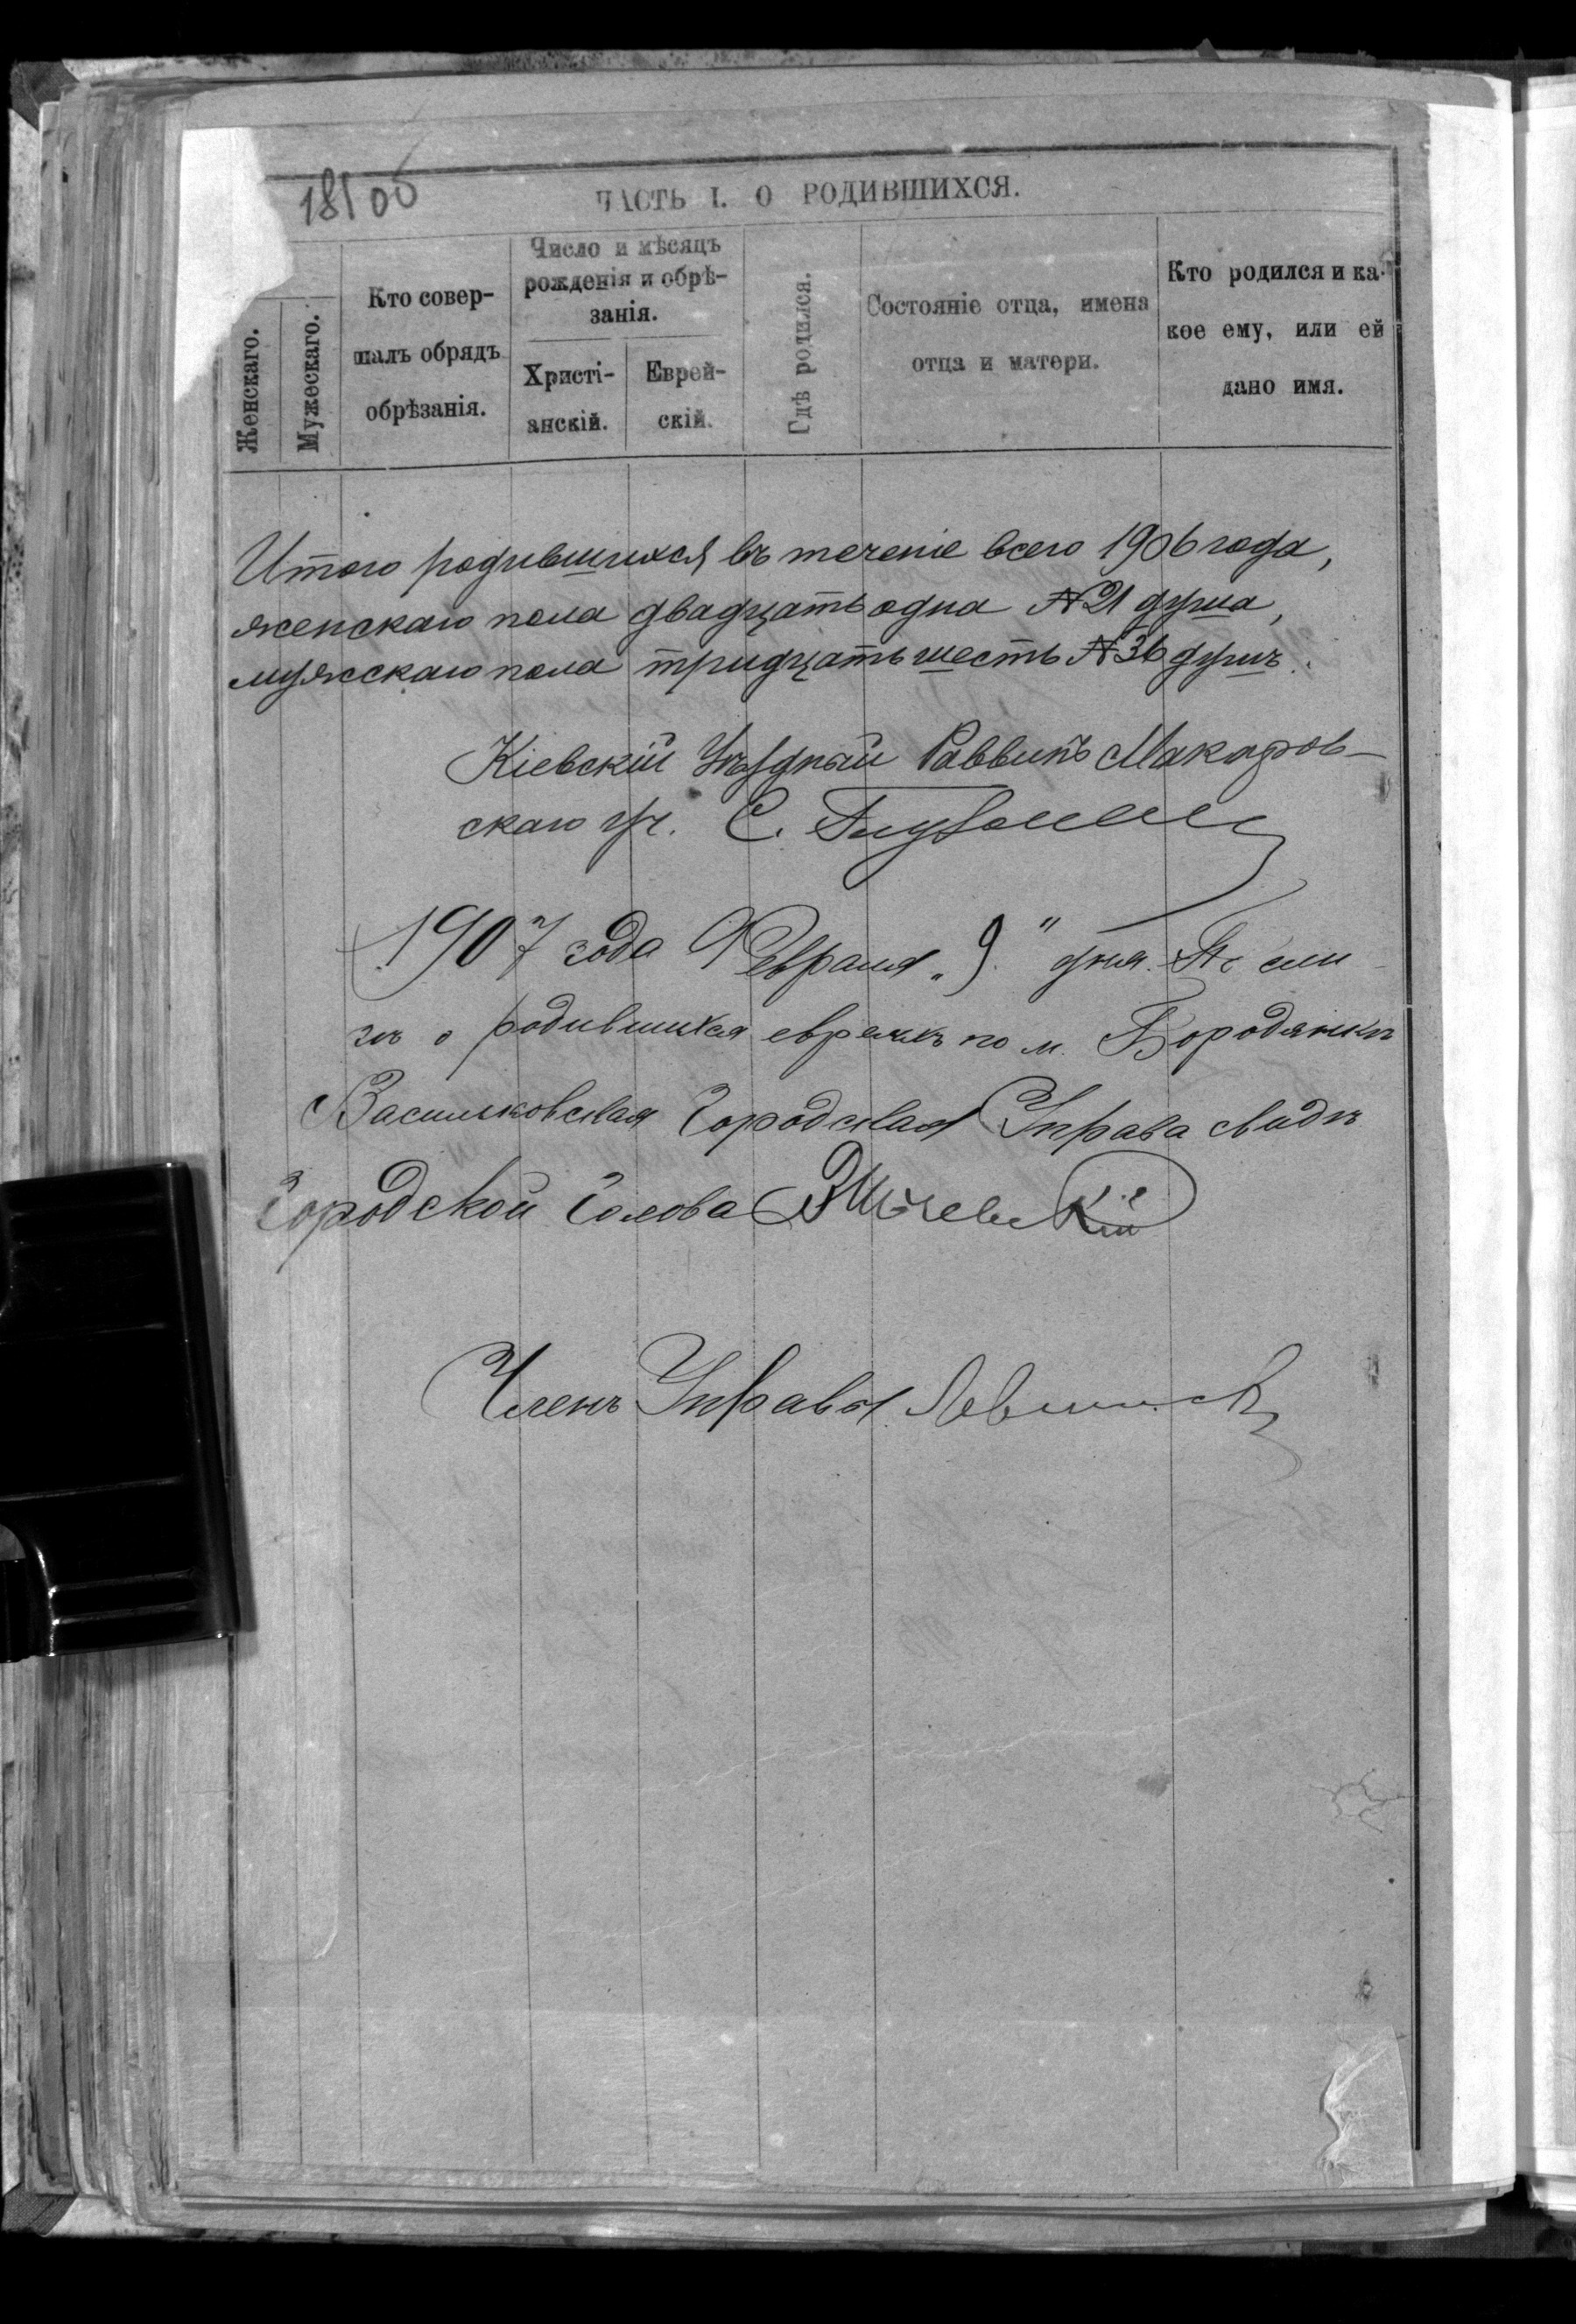 18100
ЧАСТЬ I. О РОДИВШИХСЯ.
Женскаго.
Мужескаго.
Кто совер-
шалъ обрядъ
обрѣзанія.
Число и мѣсяцъ
рожденія и обрѣ-
занія.
Христі-
анскій.
Еврей-
скій.
Гдѣ родился.
Состояніе отца, имена
отца и матери.
Кто родился и ка-
кое ему, или ей
дано имя.
Итого родившихся въ теченіе всего 1906 года,
женскаго пола двадцать одна №21 душа,
мужскаго пола тридцать шесть №36 душъ.
Кіевскій Уѣздный Раввинъ Макаров-
скаго уч. С.
1907 года Февраля „9" дня.
о родившихся евреяхъ по м. Бородянкѣ
Васильковская Городская Управа свидѣ
Городской Голова
Членъ Управы